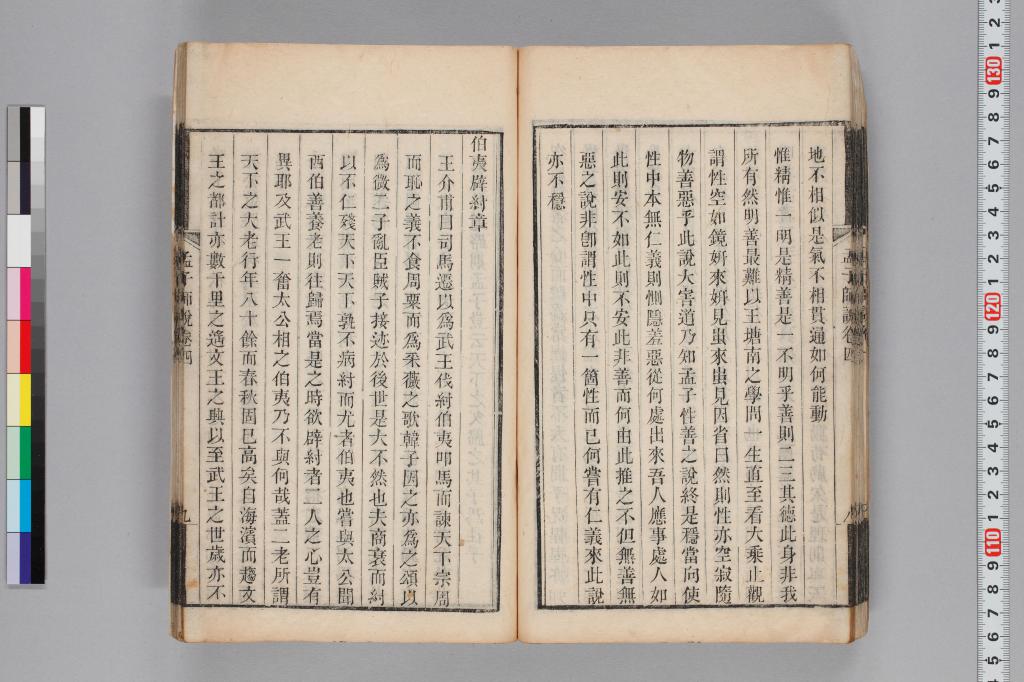 地不相似是氣不相貫通如何能動
惟精惟一明是精善是一不明乎善則二三其德此身非我
所有然明善最難以王塘南之學問一生直至看大乘止觀
謂性空如鏡妍來妍見蚩來蚩見因省曰然則性亦空寂隨
物善惡乎此說大害道乃知孟子性善之說終是穩當向使
性中本無仁義則惻隱羞惡從何處出來吾人應事處人如
此則安不如此則不安此非善而何由此推之不但無善無
惡之說非卽謂性中只有一箇性而已何嘗有仁義來此說
亦不穩
孟子師說卷四
伯夷辟紂章
王介甫曰司馬遷以爲武王伐紂伯夷叩馬而諫天下宗周
而恥之義不食周粟而爲采薇之歌韓子因之亦爲之頌以
爲微二子亂臣賊子接迹於後世是大不然也夫商衰而紂
以不仁殘天下天下孰不病紂而尤者伯夷也嘗與太公聞
西伯善養老則往歸焉當是之時欲辟紂者二人之心豈有
異耶及武王一奮太公相之伯夷乃不與何哉蓋二老所謂
天下之大老行年八十餘而春秋固已高矣自海濱而趨文
王之都計亦數千里之遙文王之興以至武王之世歲亦不
孟子師說卷四
九